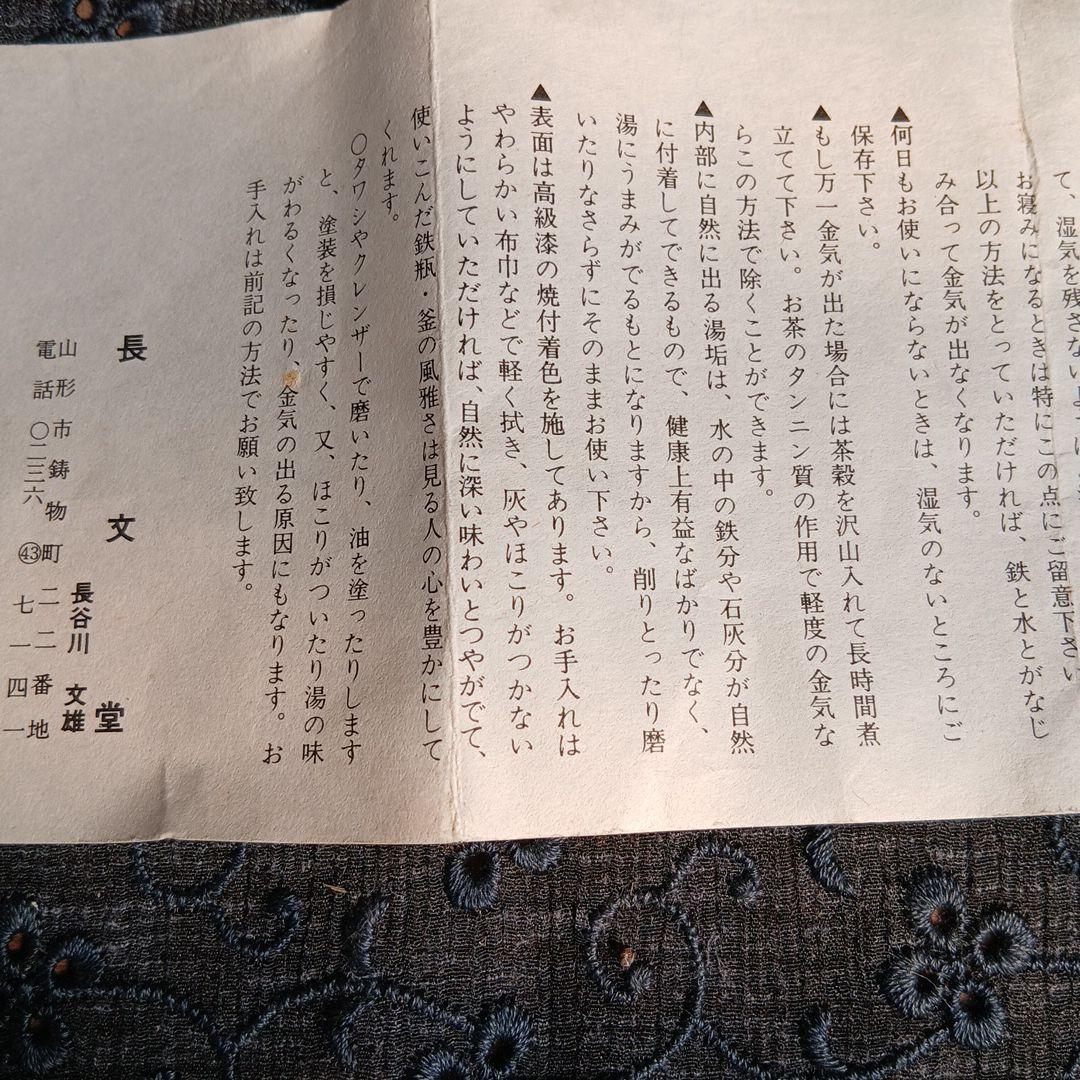 て、湿気を残さないように
お寝みになるときは特にこの点にご留意下さい
以上の方法をとっていただければ、鉄と水とがなじ
み合って金気が出なくなります。
▲何日もお使いにならないときは、湿気のないところにご
保存下さい。
▲もし万一金気が出た場合には茶殻を沢山入れて長時間煮
立てて下さい。お茶のタンニン質の作用で軽度の金気な
らこの方法で除くことができます。
▲内部に自然に出る湯垢は、水の中の鉄分や石灰分が自然
に付着してできるもので、健康上有益なばかりでなく、
湯にうまみがでるもとになりますから、削りとったり磨
いたりなさらずにそのままお使い下さい。
▲表面は高級漆の焼付着色を施してあります。お手入れは
やわらかい布巾などで軽く拭き、灰やほこりがつかない
ようにしていただければ、自然に深い味わいとつやがでて、
使いこんだ鉄瓶・釜の風雅さは見る人の心を豊かにして
くれます。
〇タワシやクレンザーで磨いたり、油を塗ったりします
と、塗装を損じやすく、又、ほこりがついたり湯の味
がわるくなったり、金気の出る原因にもなります。お
手入れは前記の方法でお願い致します。
長文堂
長谷川 文雄
山形市鋳物町二二番地
電話〇二三六㊸七一四一